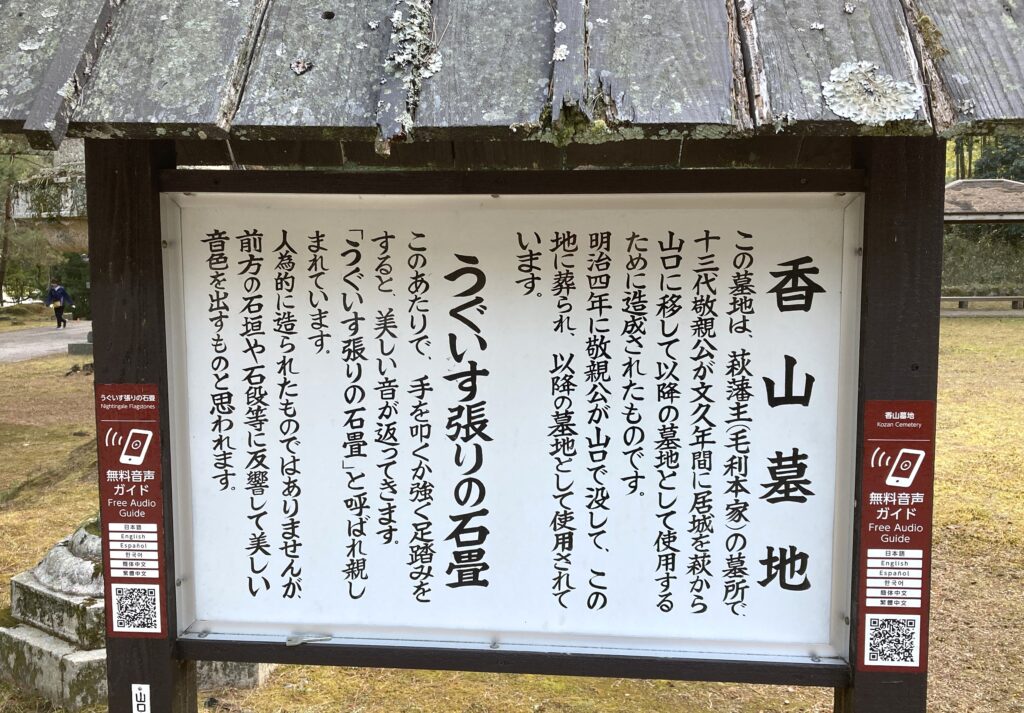 香山墓地
この墓地は、萩藩主(毛利本家)の墓所で、
十三代敬親公が文久年間に居城を萩から
山口に移して以降の墓地として使用する
ために造成されたものです。
明治四年に敬親公が山口で没して、この
地に葬られ、以降の墓地として使用されて
います。
うぐいす張りの石畳
このあたりで、手を叩くか強く足踏みを
すると、美しい音が返ってきます。
「うぐいす張りの石畳」と呼ばれ親し
まれています。
人為的に造られたものではありませんが、
前方の石垣や石段等に反響して美しい
音色を出すものと思われます。
うぐいす張りの石畳
Nightingale Flagstones
無料音声
ガイド
Free Audio
Guide
日本語
English
Español
한국어
簡体中文
繁體中文
香山墓地
Kozan Cemetery
無料音声
ガイド
Free Audio
Guide
日本語
English
Español
한국어
簡体中文
繁體中文
山口